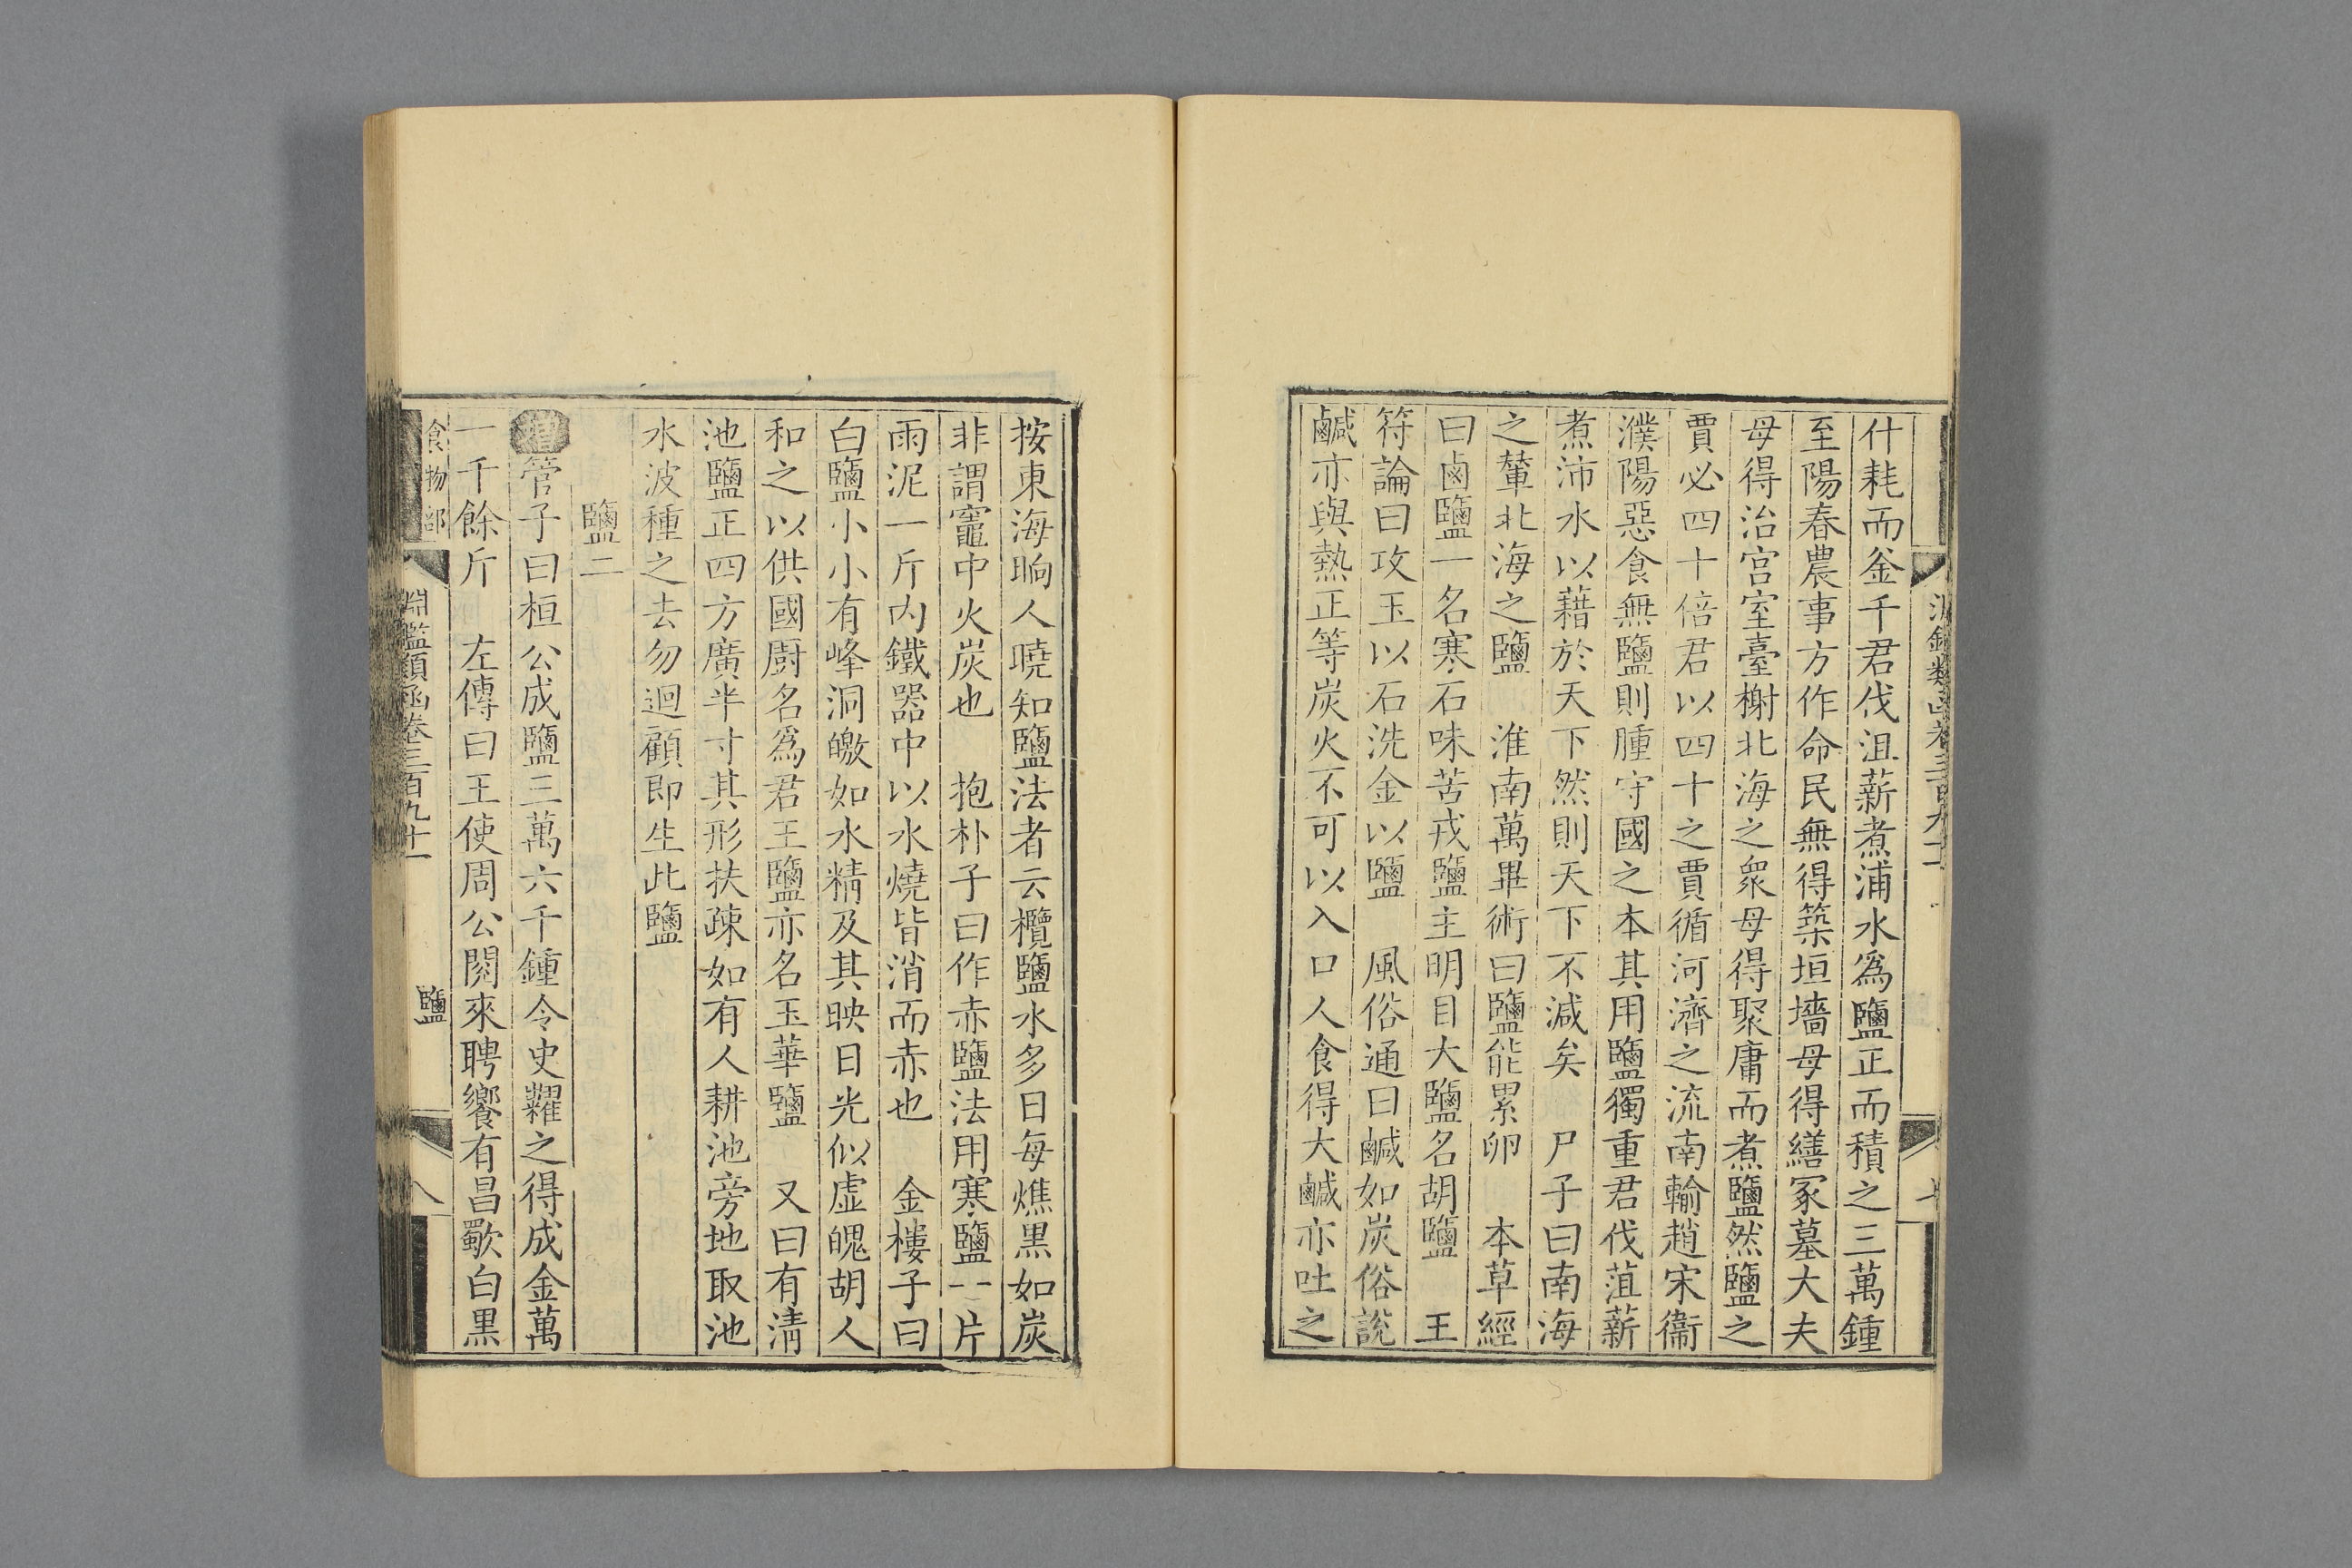 什耗而釜千君伐沮薪煮浦水爲鹽正而積之三萬鍾
至陽春農事方作命民無得築垣墻母得繕冢墓大夫
母得治宫室臺榭北海之衆母得聚庸而煮鹽然鹽之
賈必四十倍君以四十之賈循河濟之流南輸趙宋衞
濮陽惡食無鹽則腫守國之本其用鹽獨重君伐菹薪
煮沛水以藉於天下然則天下不減矣　尸子曰南海
之葷北海之鹽　淮南萬畢術曰鹽能累卵　本草經
曰鹵鹽一名寒石味苦戎鹽主明目大鹽名胡鹽　王
符論曰攻玉以石洗金以鹽　風俗通曰鹹如炭俗説
鹹亦與熱正等炭火不可以入口人食得大鹹亦吐之
按東海晌人曉知鹽法者云欖鹽水多日每燋黒如炭
非謂竈中火炭也　抱朴子曰作赤鹽法用寒鹽一片
雨泥一斤内鐵器中以水燒皆消而赤也　金樓子曰
白鹽小小有峰洞皦如水精及其映日光似虚魄胡人
和之以供國厨名爲君王鹽亦名玉華鹽　又曰有清
池鹽正四方廣半寸其形扶疎如有人耕池旁地取池
水波種之去勿迴顧即生此鹽
鹽二
增管子曰桓公成鹽三萬六千鍾令史糶之得成金萬
一千餘斤　左傳曰王使周公閱來聘饗有昌歜白黒
食物部　淵鑑類函卷三百九十一　鹽　八